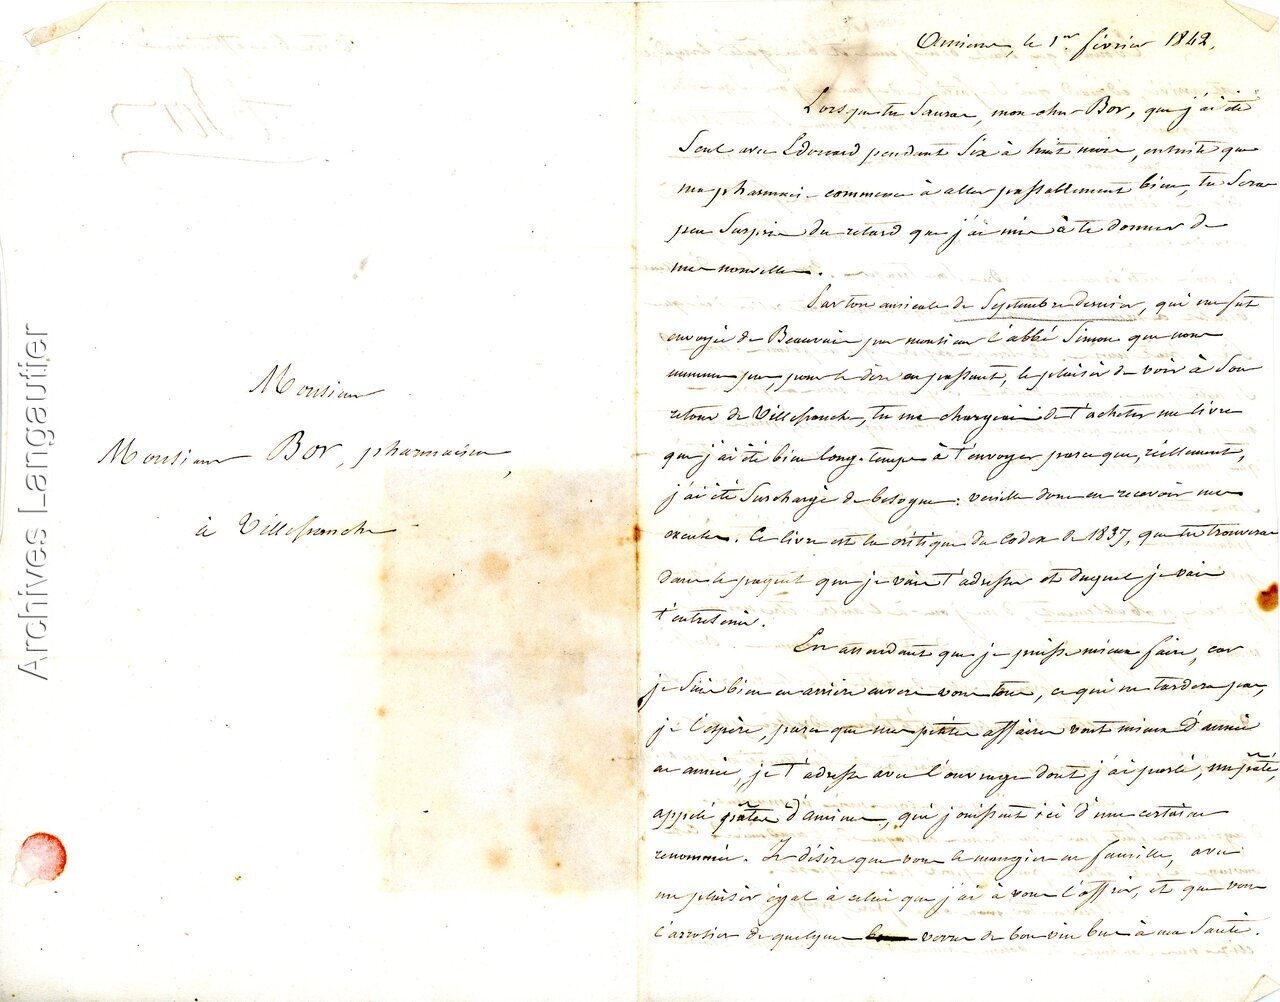 Monsieur
Monsieur Bor, pharmacien,
à Villefranche
Archives Langautier
Amiens, le 1er février 1842.
Lorsque tu sauras, mon cher Bor, que j'ai été
seul avec Edouard pendant six à huit mois, ensuite que
ma pharmacie commence à aller passablement bien, tu seras
peu surpris du retard que j'ai mis à te donner de
mes nouvelles.
Par ton amicale de Septembre dernier, qui me fut
envoyée de Beauvais par monsieur l'abbé Simon que nous
n'eumes pas, pour le dire en passant, le plaisir de voir à son
retour de Villefranche, tu me chargeais de t'acheter un livre
que j'ai été bien long-temps à t'envoyer parce que, réellement,
j'ai été surchargé de besogne: veuille donc en recevoir mes
excuses. Ce livre est la critique du Codex de 1837, que tu trouveras
dans le paquet que je vais t'adresser et duquel je vais
t'entretenir.
En attendant que je puisse mieux faire, car
je suis bien en arrière envers vous tous, ce qui ne tardera pas,
je l'espère, parce que mes petites affaires vont mieux d'année
en année, je t'adresse avec l'ouvrage dont j'ai parlé, un pâté,
appelé pâté d'amiens, qui jouissent ici d'une certaine
renommée. Je désire que vous le mangiez en famille, avec
un plaisir égal à celui que j'ai à vous l'offrir, et que vous
l'arrosiez de quelques verres de bon vin bus à ma santé.